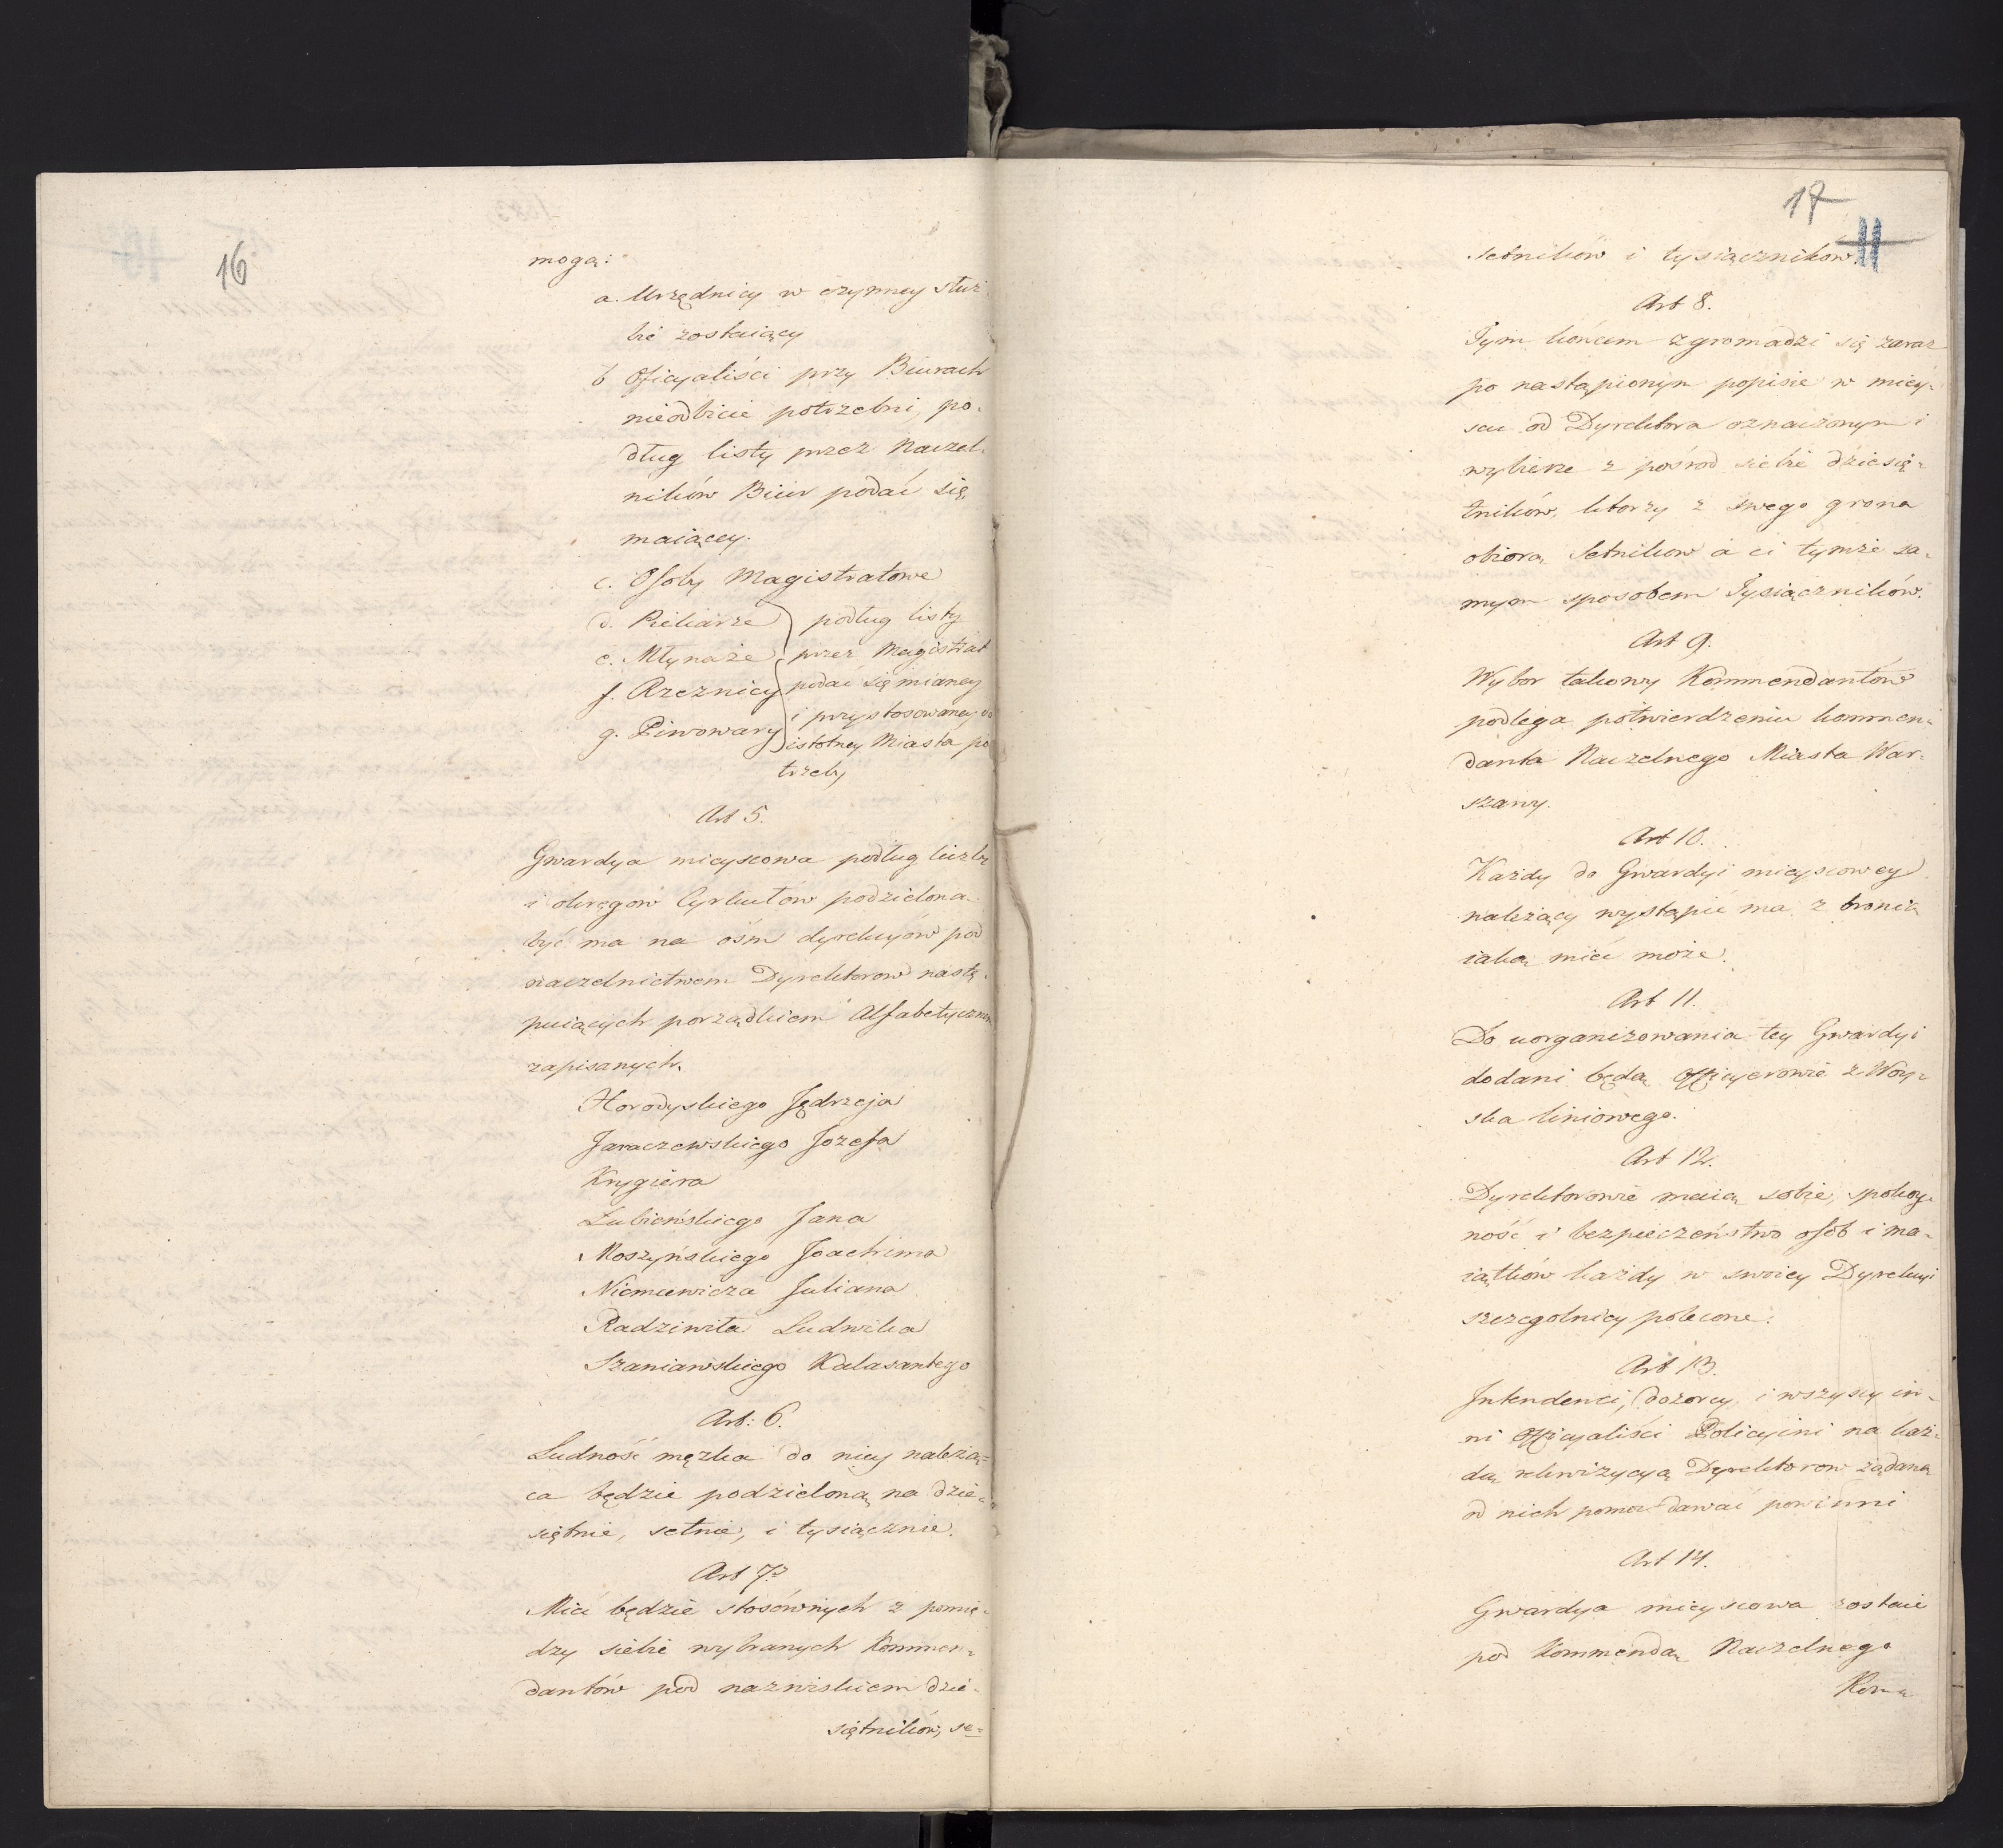 16
mogą:
a. Urzędnicy w czynney służ-
bie zostaiący
b Oficyaliści przy Biurach
nieodbicie potrzebni, po-
dług listy przez Naczel-
ników Biur podać się
maiącey.
c. Osoby Magistratowe
d. Piekarze podług listy
e. Młynaże przez Magistrat
f. Rzeznicy podać się mianey
g. Piwowary i przystosowaney do
istotney Miasta po
trzeby
Art 5.
Gwardya mieyscowa podług liczby
i okręgow Cyrkułów podzielona
być ma na ośm dyrekcyów pod
naczelnictwem Dyrektorow nastę-
puiących porządkiem Alfabetycznem
zapisanych.
Horodyskiego Jędrzeja
Jaraczewskiego Jozefa
Krygiera
Lubieńskiego Jana
Moszyńskiego Joachima
Niemcewicza Juliana
Radziwiła Ludwika
Szaniawskiego Kalasantego
Art: 6.
Ludność męzka do niey należą=
ca będzie podzieloną na dzie-
siętnie, setnie, i tysiącznie.
Art 7.
Mieć będzie stosównych z pomię-
dzy siebie wybranych Kommen-
dantów pod nazwiskiem dzie-
siętników, se=
17
11
setników i tysiączników.
Art 8.
Tym końcem zgromadzi się zaraz
po nastąpionym popisie w miey-
scu od Dyrektora oznaczonym i
wybierze z pośrod siebie dziesię-
tników, ktorzy z swego grona
obiorą Setnikow a ci tymże sa-
mym sposobem Tysiączników.
Art 9.
Wybor takowy Kommendantów
podlega potwierdzeniu kommen-
danta Naczelnego Miasta War-
szawy.
Art 10.
Każdy do Gwardyi mieyscowey
należący wystąpić ma z bronią
iaką mieć może.
Art 11.
Do uorganizowania tey Gwardyi
dodani będą Officyerowie z Woy-
ska liniowego.
Art 12.
Dyrektorowie maią sobie, spokoy-
ność i bezpieczeństwo osób i ma-
iątków każdy w swoiey Dyrekcyi
szczegolniey polecone.
Art 13.
Intendenci, dozorcy, i wszyscy in-
ni Officyaliści Policyini na każ-
dą rekwizycyą Dyrektorow żądaną
od nich pomoc dawać powinni
Art 14.
Gwardya mieyscowa zostaie
pod Kommendą Naczelnego
Kom-